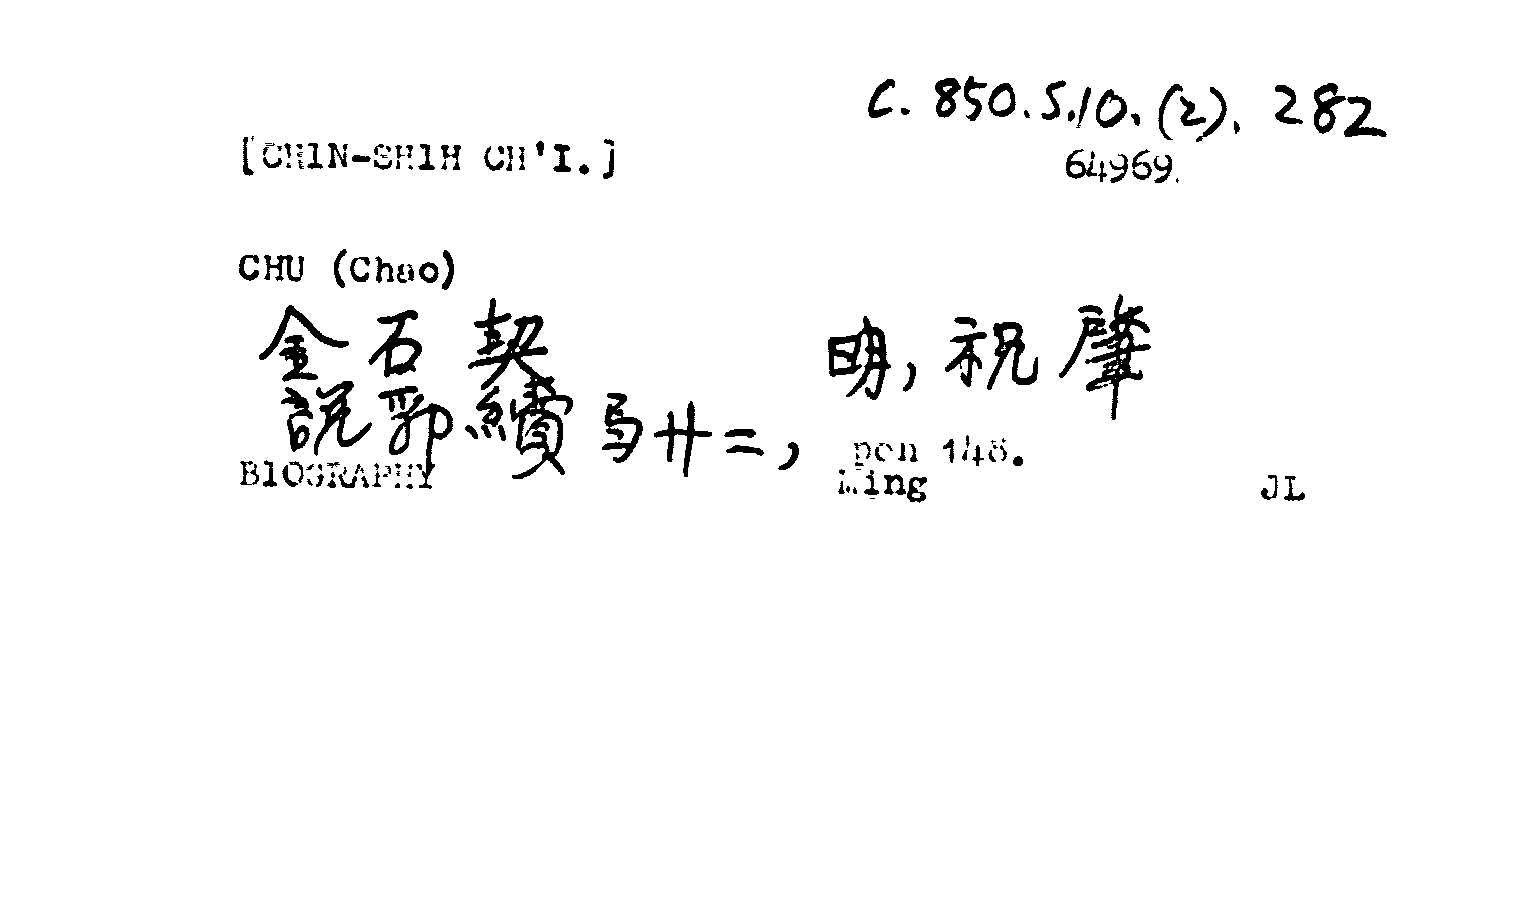 C. 850.S.10.(2). 282
[CHIN-SHIH CH'I.]
64969.
CHU (Chao)
金石契 明, 祝肇
説郛續弓廿二, pen 148.
BIOGRAPHY Ming JL